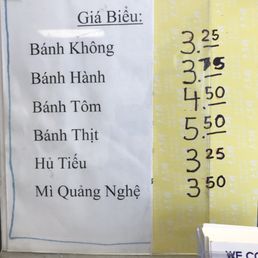 Giá Biểu:
Bánh Không 3.25
Bánh Hành 3.75
Bánh Tôm 4.50
Bánh Thịt 5.50
Hủ Tiếu 3 25
Mì Quảng Nghệ 3 50
WE